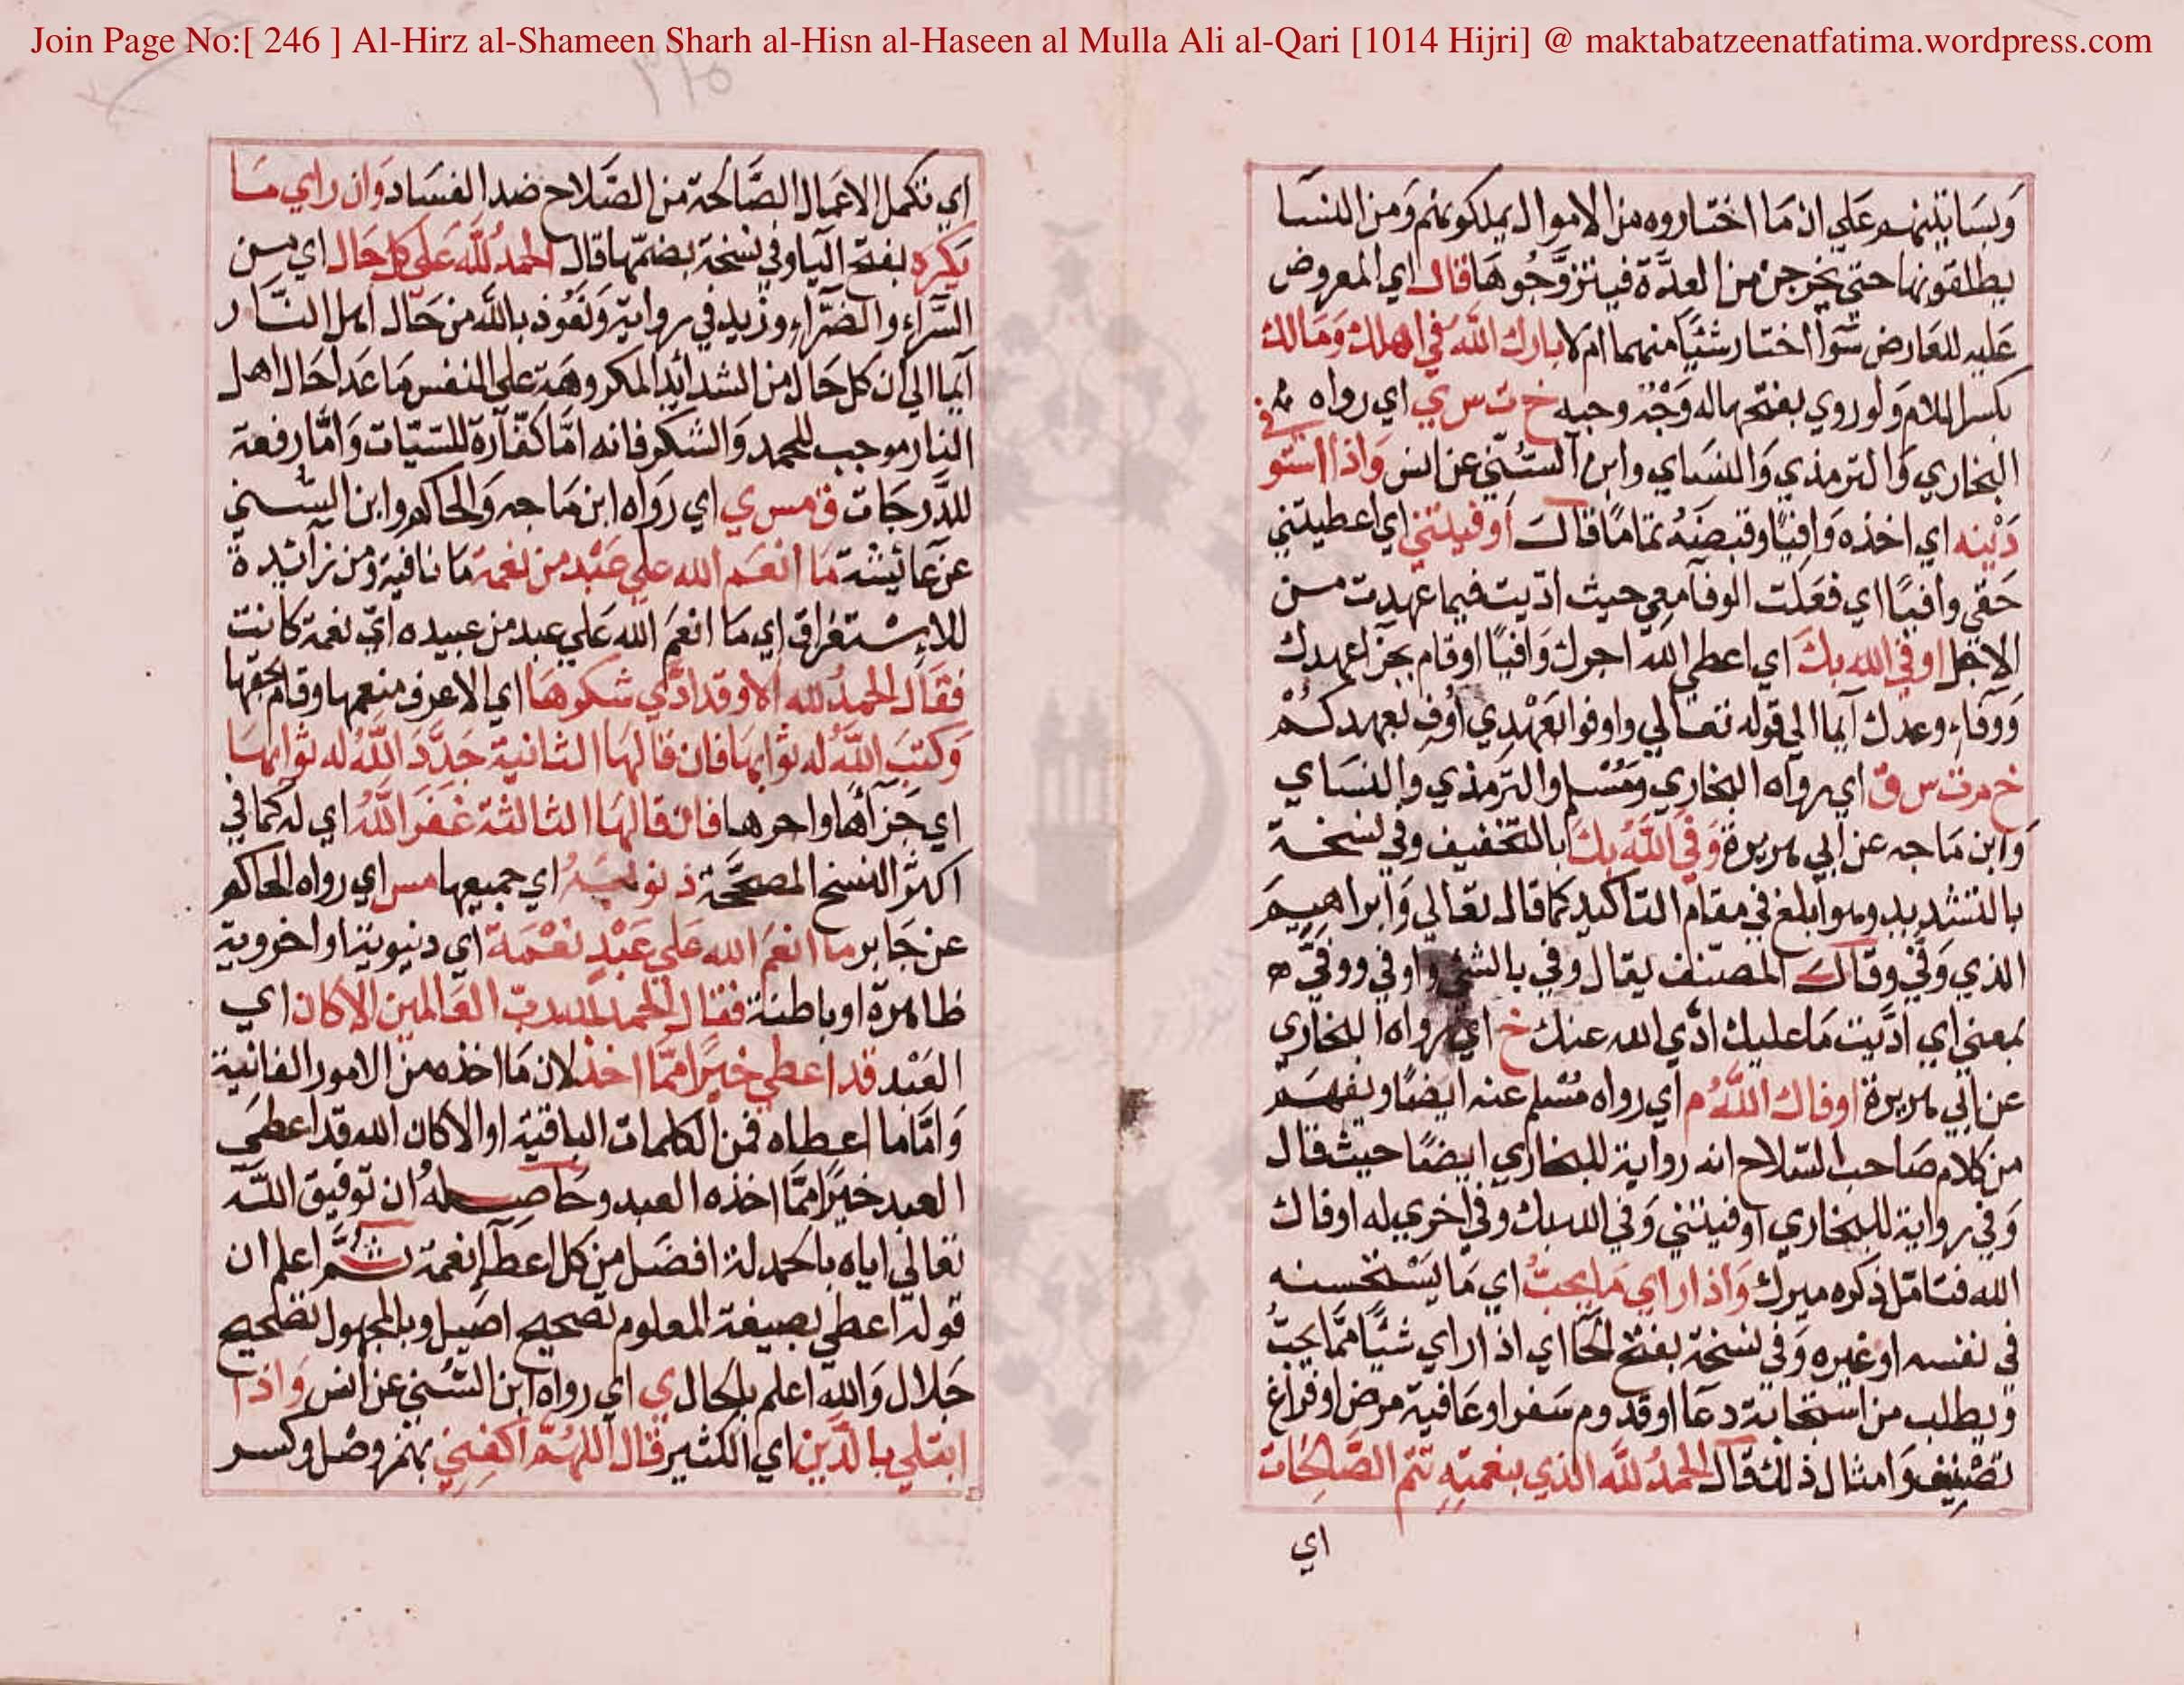 Join Page No:[ 246 ] Al-Hirz al-Shameen Sharh al-Hisn al-Haseen al Mulla Ali al-Qari [1014 Hijri] @ maktabatzeenatfatima.wordpress.com
وبساتينهم علي ان ما اختاروه من الاموال يملكونهم ومن النسا
يطلقونها حتي يخرجن من العدة فيتزوجوها قال اي المعروض
عليه للعارض سوآ اختار شيًا منهما ام لا بارك الله في اهلك ومالك
بكسر اللام ولو روي بفتحها له وجه وجيه خ ت س ي اي رواه
البخاري والترمذي والنساي وابن السني عن انس واذا استوفي
دينه اي اخذه وافيًا وقبضه تمامًا قال اوفيتني اي اعطيتني
حقي وافيًا اي فعلت الوفا معي حيث اديت فيما عهدت من
الاجل اوفي الله بك اي اعطي الله اجرك وافيًا او قام بجزا عهدك
ووفاء وعدك ايما الي قوله تعالي واوفوا بعهدي اوف بعهدكم
خ م ت س ق اي رواه البخاري ومسلم والترمذي والنساي
وابن ماجه عن ابي هريرة وفي الله بك بالتخفيف وفي نسخة
بالتشديد وهو ابلغ في مقام التاكيد كما قال تعالي وابراهيم
الذي وفي وقال المصنف يقال وفي بالشي واوفي ووفي
بمعني اي اديت ما عليك ادي الله عنك خ اي رواه البخاري
عن ابي هريرة اوفاك الله م اي رواه مسلم عنه ايضًا ويفهم
من كلام صاحب السلاح انه رواية للبخاري ايضًا حيث قال
وفي رواية للبخاري اوفيتني وفي الله بك وفي اخري له اوفاك
الله فتامل ذكره ميرك واذا راي ما يحب اي ما يستحسنه
في نفسه او غيره وفي نسخة بفتح الحا اي اذا راي شيًا مما يحب
ويطلب من استجابة دعا او قدوم سفر او عافية مرض او فراغ
تصنيف وامثال ذلك قال الحمد لله الذي بنعمته تتم الصالحات
اي
اي تكمل الاعمال الصالحة من الصلاح ضد الفساد وان راي ما
يكره بفتح اليا وفي نسخة بضمها قال الحمد لله علي كل حال اي من
السراء والضراء وزيد في رواية ونعوذ بالله من حال اهل النار
ايما الي ان كل حال من الشدائد المكروهة علي النفس ما عدا حال اهل
النار موجب للحمد والشكر فانه اما كفارة للسيات واما رفعة
للدرجات ق مس ي اي رواه ابن ماجه والحاكم وابن السني
عن عائيشة ما انعم الله علي عبد من نعمة ما نافية ومن زائدة
للاستغراق اي ما انعم الله علي عبد من عبيده اي نعمة كانت
فقال الحمد لله الا وقد ادي شكرها اي الا عرف منعمها وقام بحقها
وكتب الله له ثوابها فان قالها الثانية جدد الله له ثوابها
اي جزآها واجرها فان قالها الثالثة غفر الله اي له كما في
اكثر النسخ المصححة ذنوبه اي جميعها مس اي رواه الحاكم
عن جابر ما انعم الله علي عبد نعمة اي دنيوية او اخروية
ظاهرة او باطنة فقال الحمد لله رب العالمين الا كان اي
العبد قد اعطي خيرًا مما اخذ لان ما اخذه من الامور الفانية
واما ما اعطاه فمن الكلمات الباقية او الا كان الله قد اعطي
العبد خيرًا مما اخذه العبد وحاصله ان توفيق الله
تعالي اياه بالحمدلة افضل من كل اعطآء نعمة ثم اعلم ان
قوله اعطي بصيغة المعلوم تصحيح اصيل وبالمجهول تصحيح
جلال والله اعلم بالحال ي اي رواه ابن السني عن انس واذا
ابتلي بالدين اي الكثير قال اللهم اكفني بهمز وصل وكسر